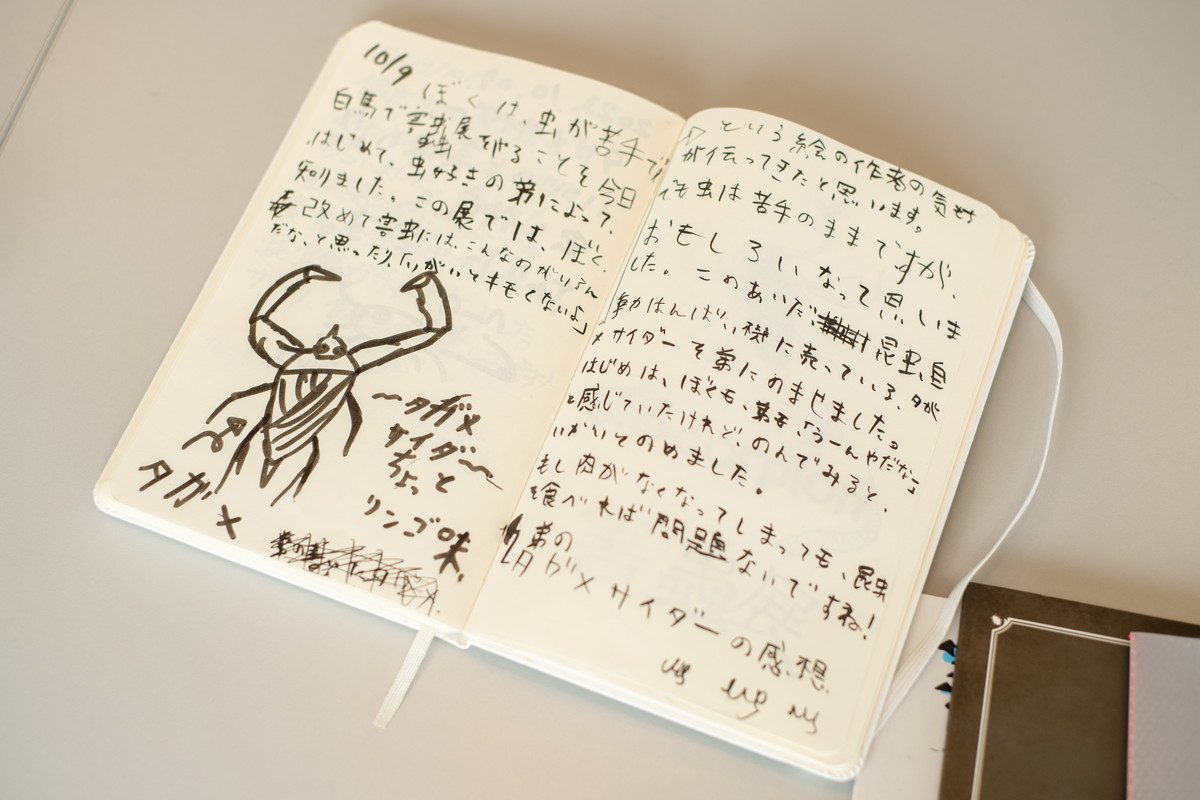 10/9
ぼくは、虫が苦手で、
白馬で害虫展をやることを今日
はじめて、虫好きの弟によって、
知りました。この展では、ぼく、
改めて害虫には、こんなのがいるん
だな、と思ったり、「いがいとキモくないよ」
~タガメ
サイダー~
ちょっと
リンゴ味、
タガメ
という絵の作者の気せ
が伝ってきたと思います。
でも虫は苦手のままですが、
おもしろいなって思いま
した。このあいだ、昆虫自
動はんばい機に売っている、タガ
メサイダーを弟にのませました。
はじめは、ぼくも、弟も、「うーんやだな」
と感じていたけれど、のんでみると、
いがいとのめました。
もし肉がなくなってしまっても、昆虫
を食べれば問題ないですね!
弟の
タガメサイダーの感想、